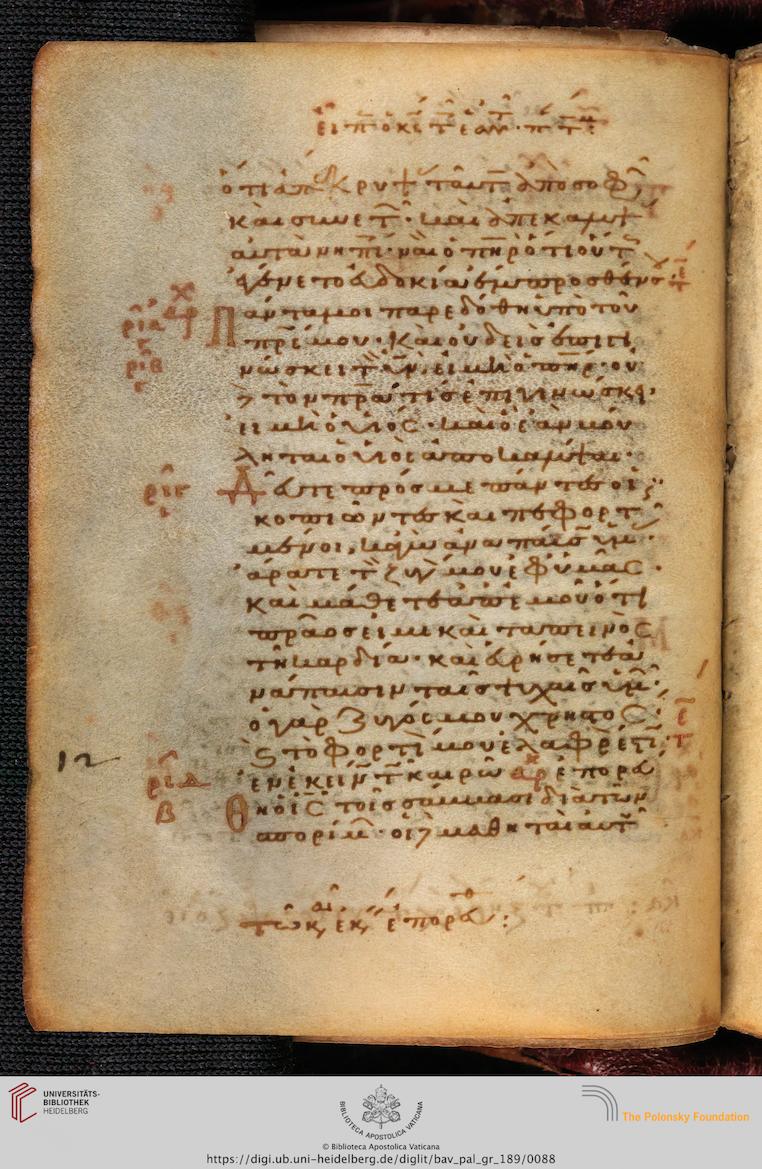 ὅτι ἀπέκρυψ ταῦτ ἀπὸ σοφ
καὶ συνετ· καὶ ἀπεκαλυψ
αὐτὰ νηπι· ναὶ ὁ πηρ ὅτι οὕτ
ἐγένετο εὐδοκία ἔμπροσθέν σ
Πάντα μοι παρεδόθη ὑπὸ τοῦ
πρς μου· Καὶ οὐδεὶς ἐπιγι
νώσκει τ ὑν, εἰ μὴ ὁ πηρ· οὐ
τὸν πρα τὶς ἐπιγινώσκει·
εἰ μὴ ὁ υἱός· καὶ ὁ ἐὰν βού
ληται ὁ υἱὸς ἀποκαλύψαι·
Δεῦτε πρός με πάντες οἱ
κοπιῶντες καὶ πεφορτ
μένοι, κἀγὼ ἀναπαύσ ὑμ·
ἄρατε τ ζυγ μου ἐφ ὑμᾶς·
καὶ μάθετε ἀπ ἐμοῦ ὅτι
πρᾶος εἰμι καὶ ταπεινὸς
τῆ καρδία· καὶ εὑρήσετε ἀ
νάπαυσιν ταῖς ψυχαῖς ὑμ·
ὁ γὰρ ζυγός μου χρηστὸς
τὸ φορτί μου ἐλαφρ ἐστι·
ἐν ἐκείν τ καιρῶ ἐπορε
θη ὁ ις τοῖς σάββασι διὰ τῶν
σπορίμ· οἱ μαθηταὶ αὐτ
12
UNIVERSITÄTS-
BIBLIOTHEK
HEIDELBERG
BIBLIOTECA APOSTOLICA VATICANA
© Biblioteca Apostolica Vaticana
The Polonsky Foundation
https://digi.ub.uni-heidelberg.de/diglit/bav_pal_gr_189/0088